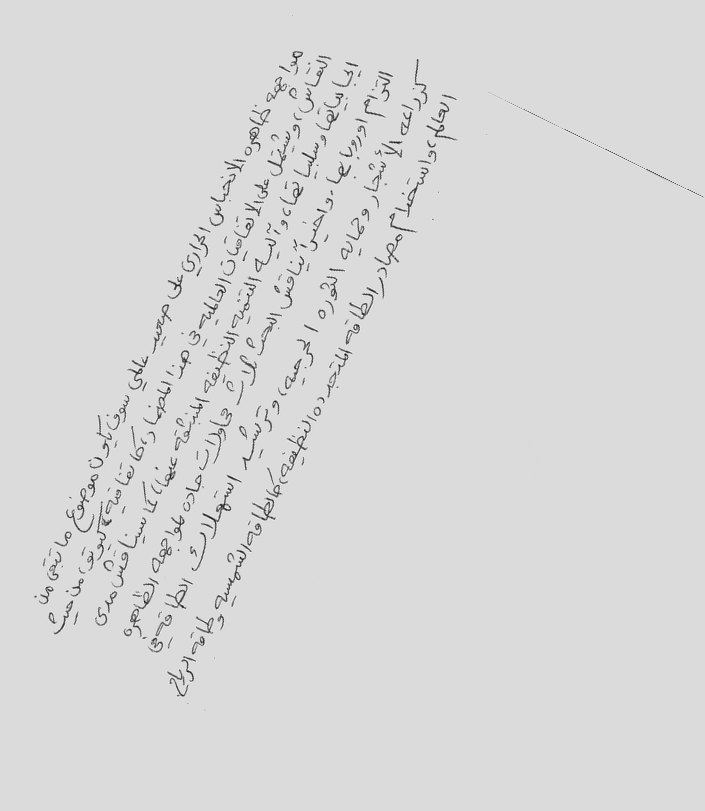 مواجهة ظاهرة الاحتباس الحراري على صعيد عالمي سوف يكون موضوع ما تبقى من
النقاش، وتشتمل على الاتفاقات العالمية في هذا المضمار، كاتفاقية كيوتو، من حيث
ايجابياتها وسلبياتها، وآلية التنمية النظيفة المنبثقة عنها، كما سيناقش مدى
التزام اوروبا بها، واخيراً يناقش البحث ثلاث محاولات جادة لمواجهة الظاهرة
كزراعة الأشجار وحماية الثروة الحرجية، وترشيد استهلاك الطاقة في
العالم، واستخدام مصادر الطاقة المتجددة النظيفة، كالطاقة الشمسية وطاقة الرياح